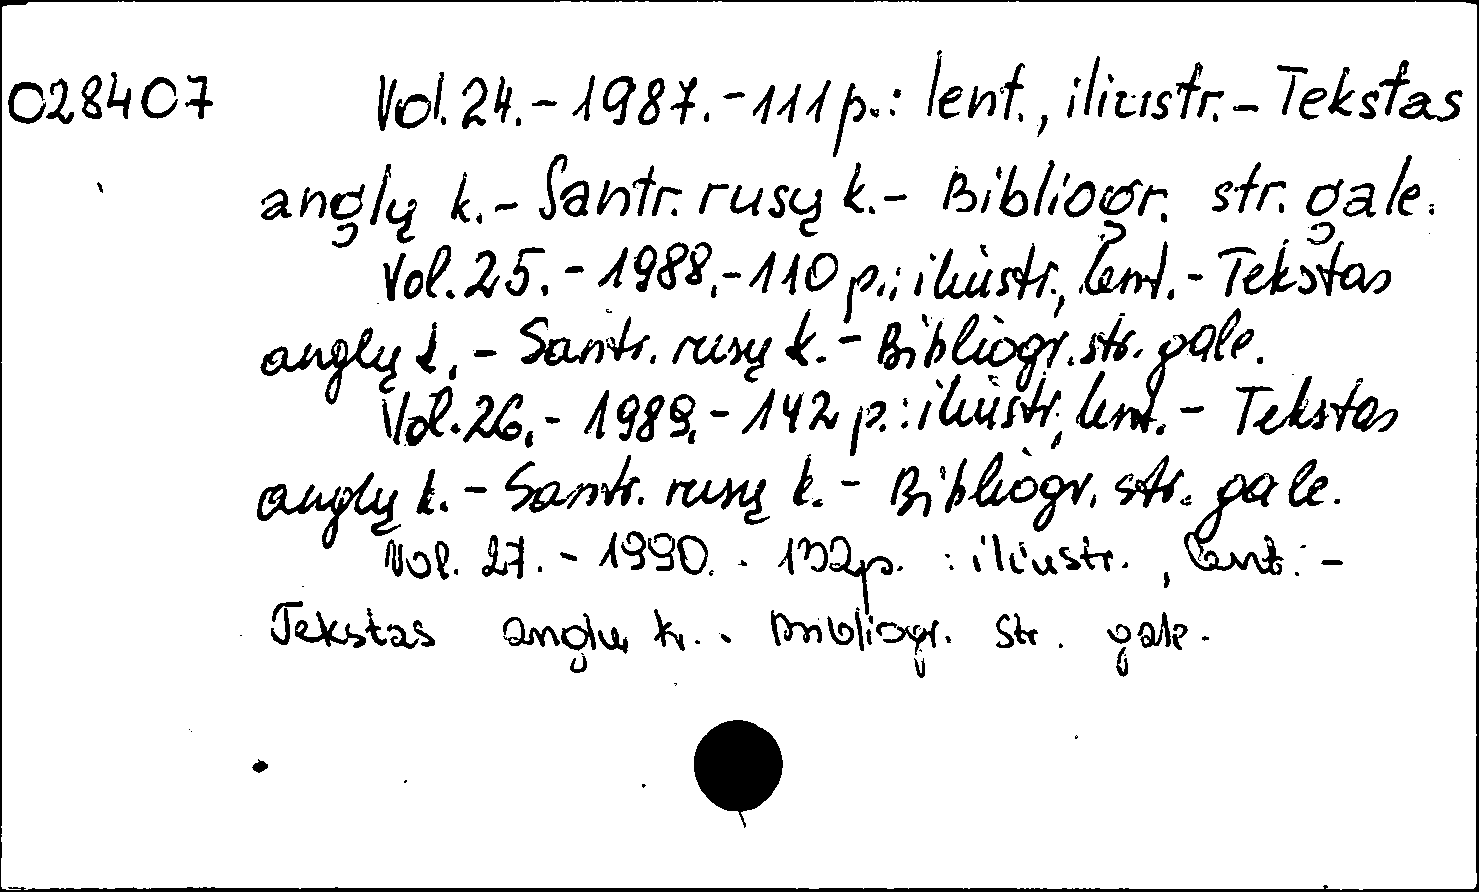 028407 Vol. 24. - 1987. - 111 p.: lent., iliustr. - Tekstas
anglų k. - Santr. rusų k. - Bibliogr. str. gale.
Vol. 25. - 1988. - 110 p.: iliustr., lent. - Tekstas
anglų k. - Santr. rusų k. - Bibliogr. str. gale.
Vol. 26. - 1989. - 142 p.: iliustr., lent. - Tekstas
anglų k. - Santr. rusų k. - Bibliogr. str. gale.
Vol. 27. - 1990. - 132 p. : iliustr., lent. -
Tekstas anglų k. - Bibliogr. str. gale.